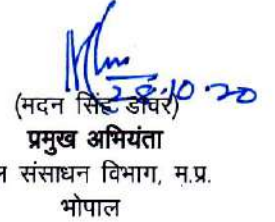 28.10.20
(मदन सिंह डावर)
प्रमुख अभियंता
संसाधन विभाग, म.प्र.
भोपाल